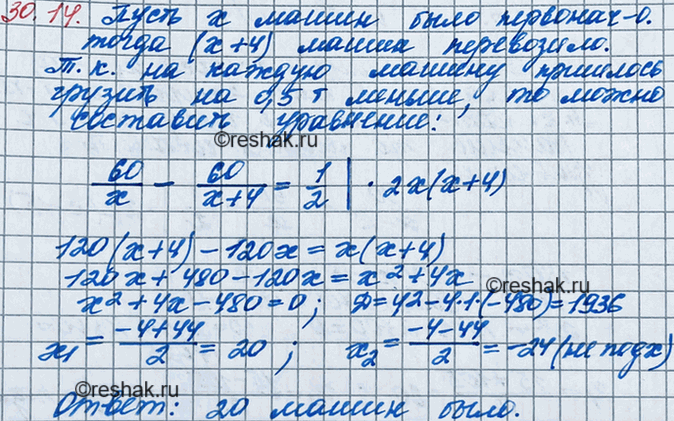 30.14. Пусть x машин было первонач-о.
тогда (x+4) машин перевозило.
Т.к. на каждую машину пришлось
грузить на 0,5 т меньше, то можно
составить уравнение:
©reshak.ru
60/x - 60/(x+4) = 1/2 | · 2x(x+4)
120(x+4) - 120x = x(x+4)
120x + 480 - 120x = x² + 4x
©reshak.ru
x² + 4x - 480 = 0; D = 4² - 4·1·(-480) = 1936
x₁ = (-4+44)/2 = 20; x₂ = (-4-44)/2 = -24 (не подх)
©reshak.ru
Ответ: 20 машин было.